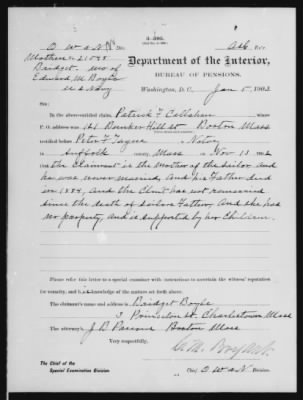 3-386.
O W & N Div.
Mother 21098
Bridget mo of
Edward M Boyle
U S Navy
Department of the Interior,
BUREAU OF PENSIONS,
Washington, D. C., Jan 5, 1903
Sir:
In the above-entitled claim, Patrick F Callahan whose
P. O. address was 121 Bunker Hill St Boston Mass
testified before Peter F Notary
Suffolk county, Mass Nov 13 1902
that the Claimant is the mother of the sailor and
he was never married, and his Father died
in 1884, and the Clmt has not remarried
since the death of sailors Father, and she has
no property, and is supported by her Children.
Please refer this letter to a special examiner with instructions to ascertain the witness' reputation
for veracity, and to the matters set forth above.
The claimant's name and address is Bridget Boyle
3 Princeton St Charlestown Mass
The attorney's, J B Parsons Boston Mass
Very respectfully,
The Chief of the
Special Examination Division
Chief, O W & N Division.